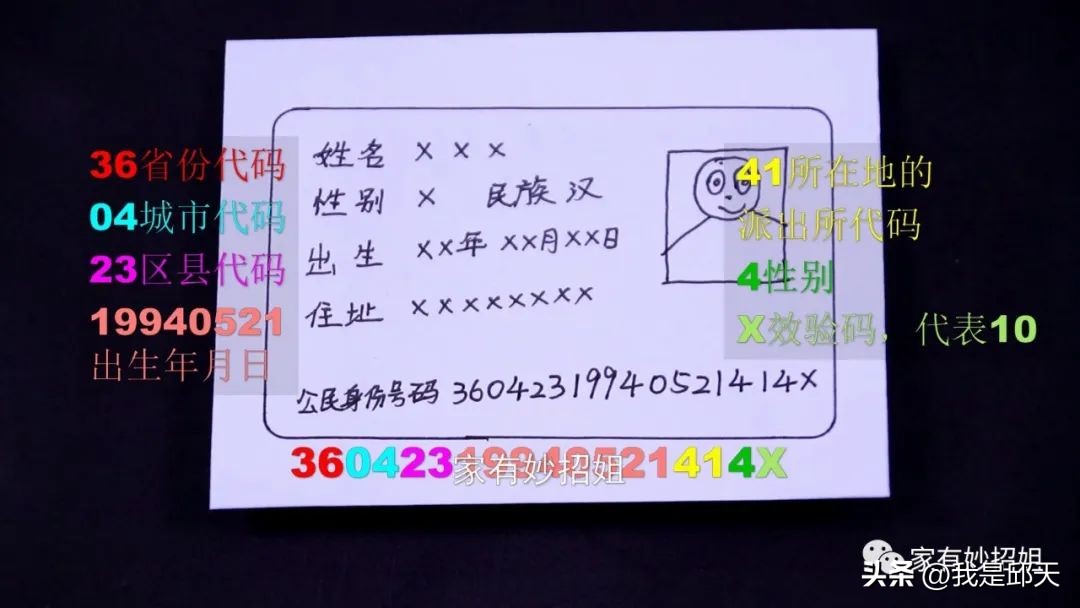 36省份代码
04城市代码
23区县代码
19940521
出生年月日
姓名 X X X
性别 X 民族 汉
出生 XX年 XX月XX日
住址 XXXXXXXX
公民身份号码 36042319940521414X
41所在地的
派出所代码
4性别
X效验码，代表10
36042319940521414X
家有妙招姐
家有妙招姐
头条 @我是邱天